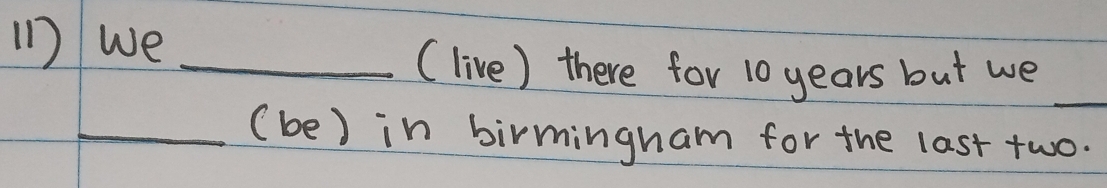 11) We ________ (live) there for 10 years but we __
______ (be) in birmingham for the last two.